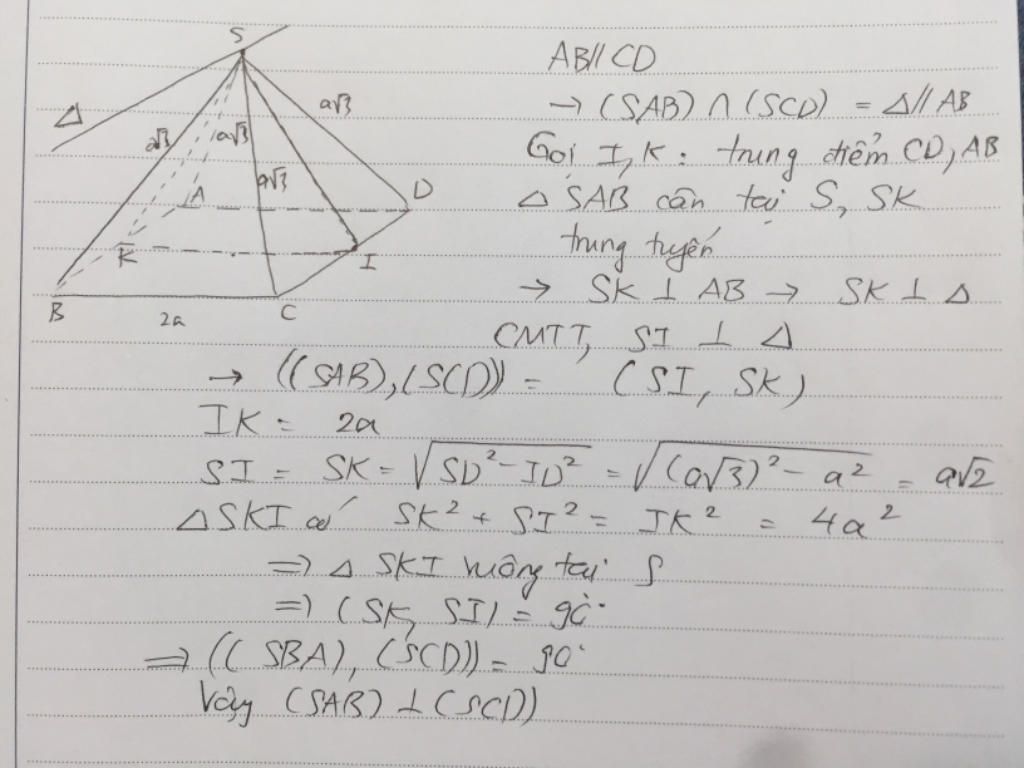 S
Δ
a√3
a√3
a√3
a√3
A
D
K
I
B
C
2a
AB // CD
→ (SAB) ∩ (SCD) = Δ // AB
Gọi I, K : trung điểm CD, AB
Δ SAB cân tại S, SK
trung tuyến
→ SK ⊥ AB → SK ⊥ Δ
CMTT, SI ⊥ Δ
→ ((SAB), (SCD)) = (SI, SK)
IK = 2a
SI = SK = √(SD² - ID²) = √((a√3)² - a²) = a√2
Δ SKI có SK² + SI² = IK² = 4a²
=> Δ SKI vuông tại S
=> (SK, SI) = 90°
=> ((SBA), (SCD)) = 90°
Vậy (SAB) ⊥ (SCD)